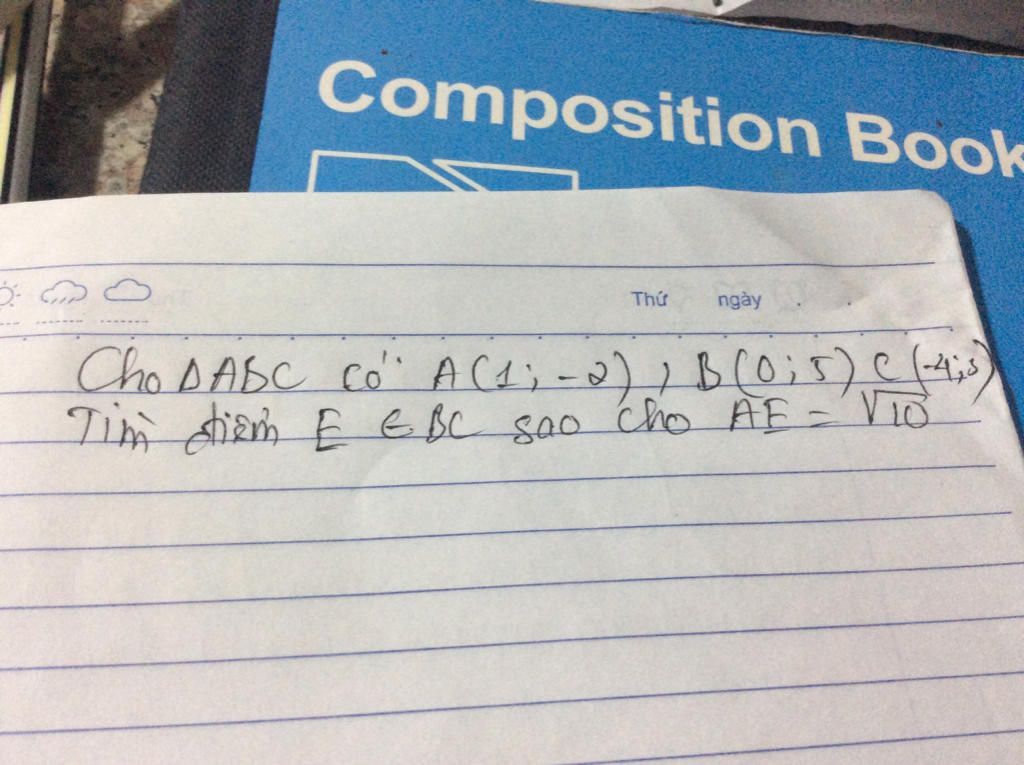 Composition Book
Thứ ngày . .
Cho ΔABC có: A(1; -2), B(0; 5) C(-4; 3)
Tìm điểm E ∈ BC sao cho AE = √10